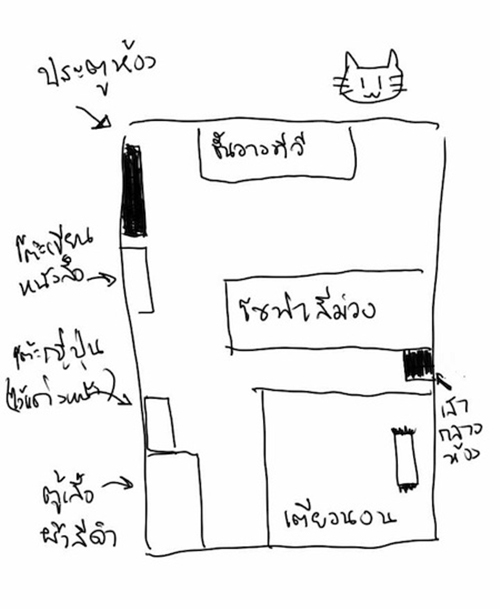 ประตูห้อง
ชั้นวางทีวี
โต๊ะเขียน
หนังสือ
โซฟาสีม่วง
โต๊ะญี่ปุ่น
(ไว้แต่งหน้า)
เสา
กลาง
ห้อง
ตู้เสื้อ
ผ้าสีดำ
เตียงนอน